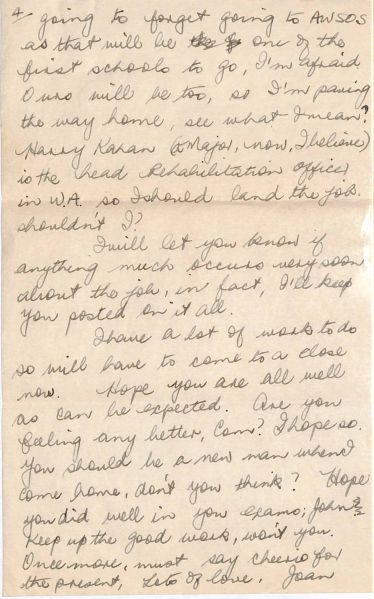 4- going to forget going to AWSOS
as that will be one of the
first schools to go, I'm afraid
Ours will be too, so I'm paving
the way home, see what I mean?
Harry Kahan (a Major, now, I believe)
is the head Rehabilitation officer
in W.A. so I should land the job.
shouldn't I?
I will let you know if
anything much occurs very soon
about the job, in fact, I'll keep
you posted on it all.
I have a lot of work to do
so will have to come to a close
now. Hope you are all well
as can be expected. Are you
feeling any better, Com? I hope so.
You should be a new man when I
come home, don't you think? Hope
you did well in you exams, John?
Keep up the good work, won't you.
Once more, must say cheerio for
the present, Lots of love, Joan